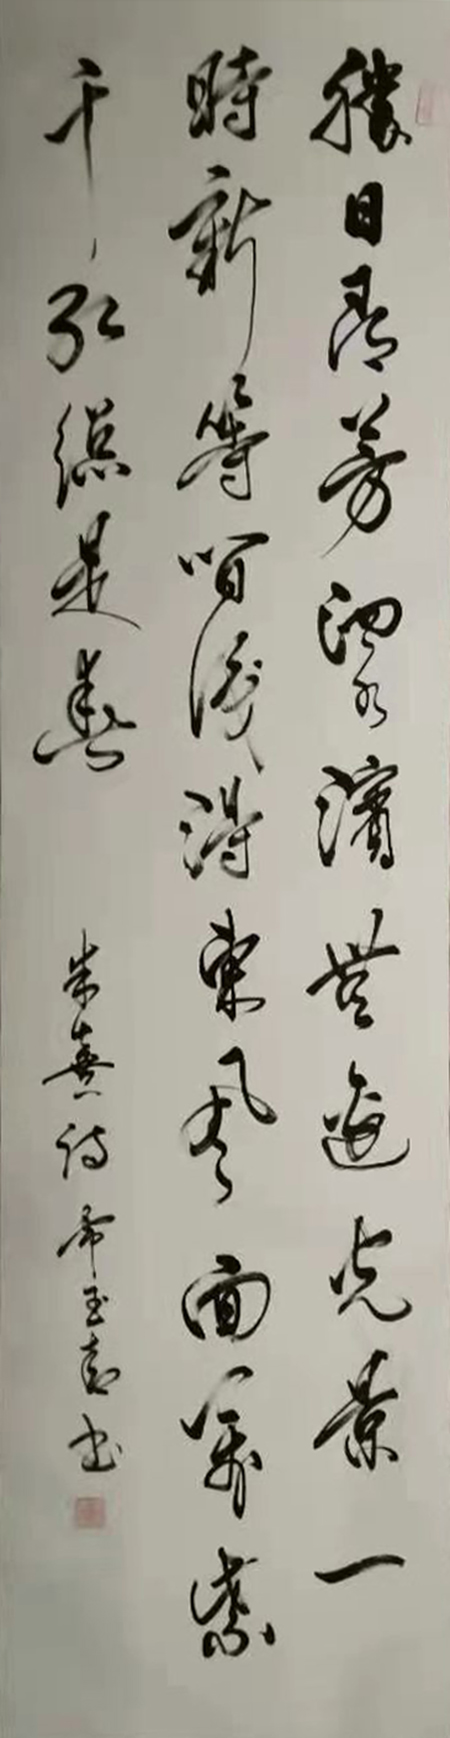 勝日尋芳泗水濱無邊光景一
時新等閒識得東風面萬紫
千紅總是春
朱熹詩 書